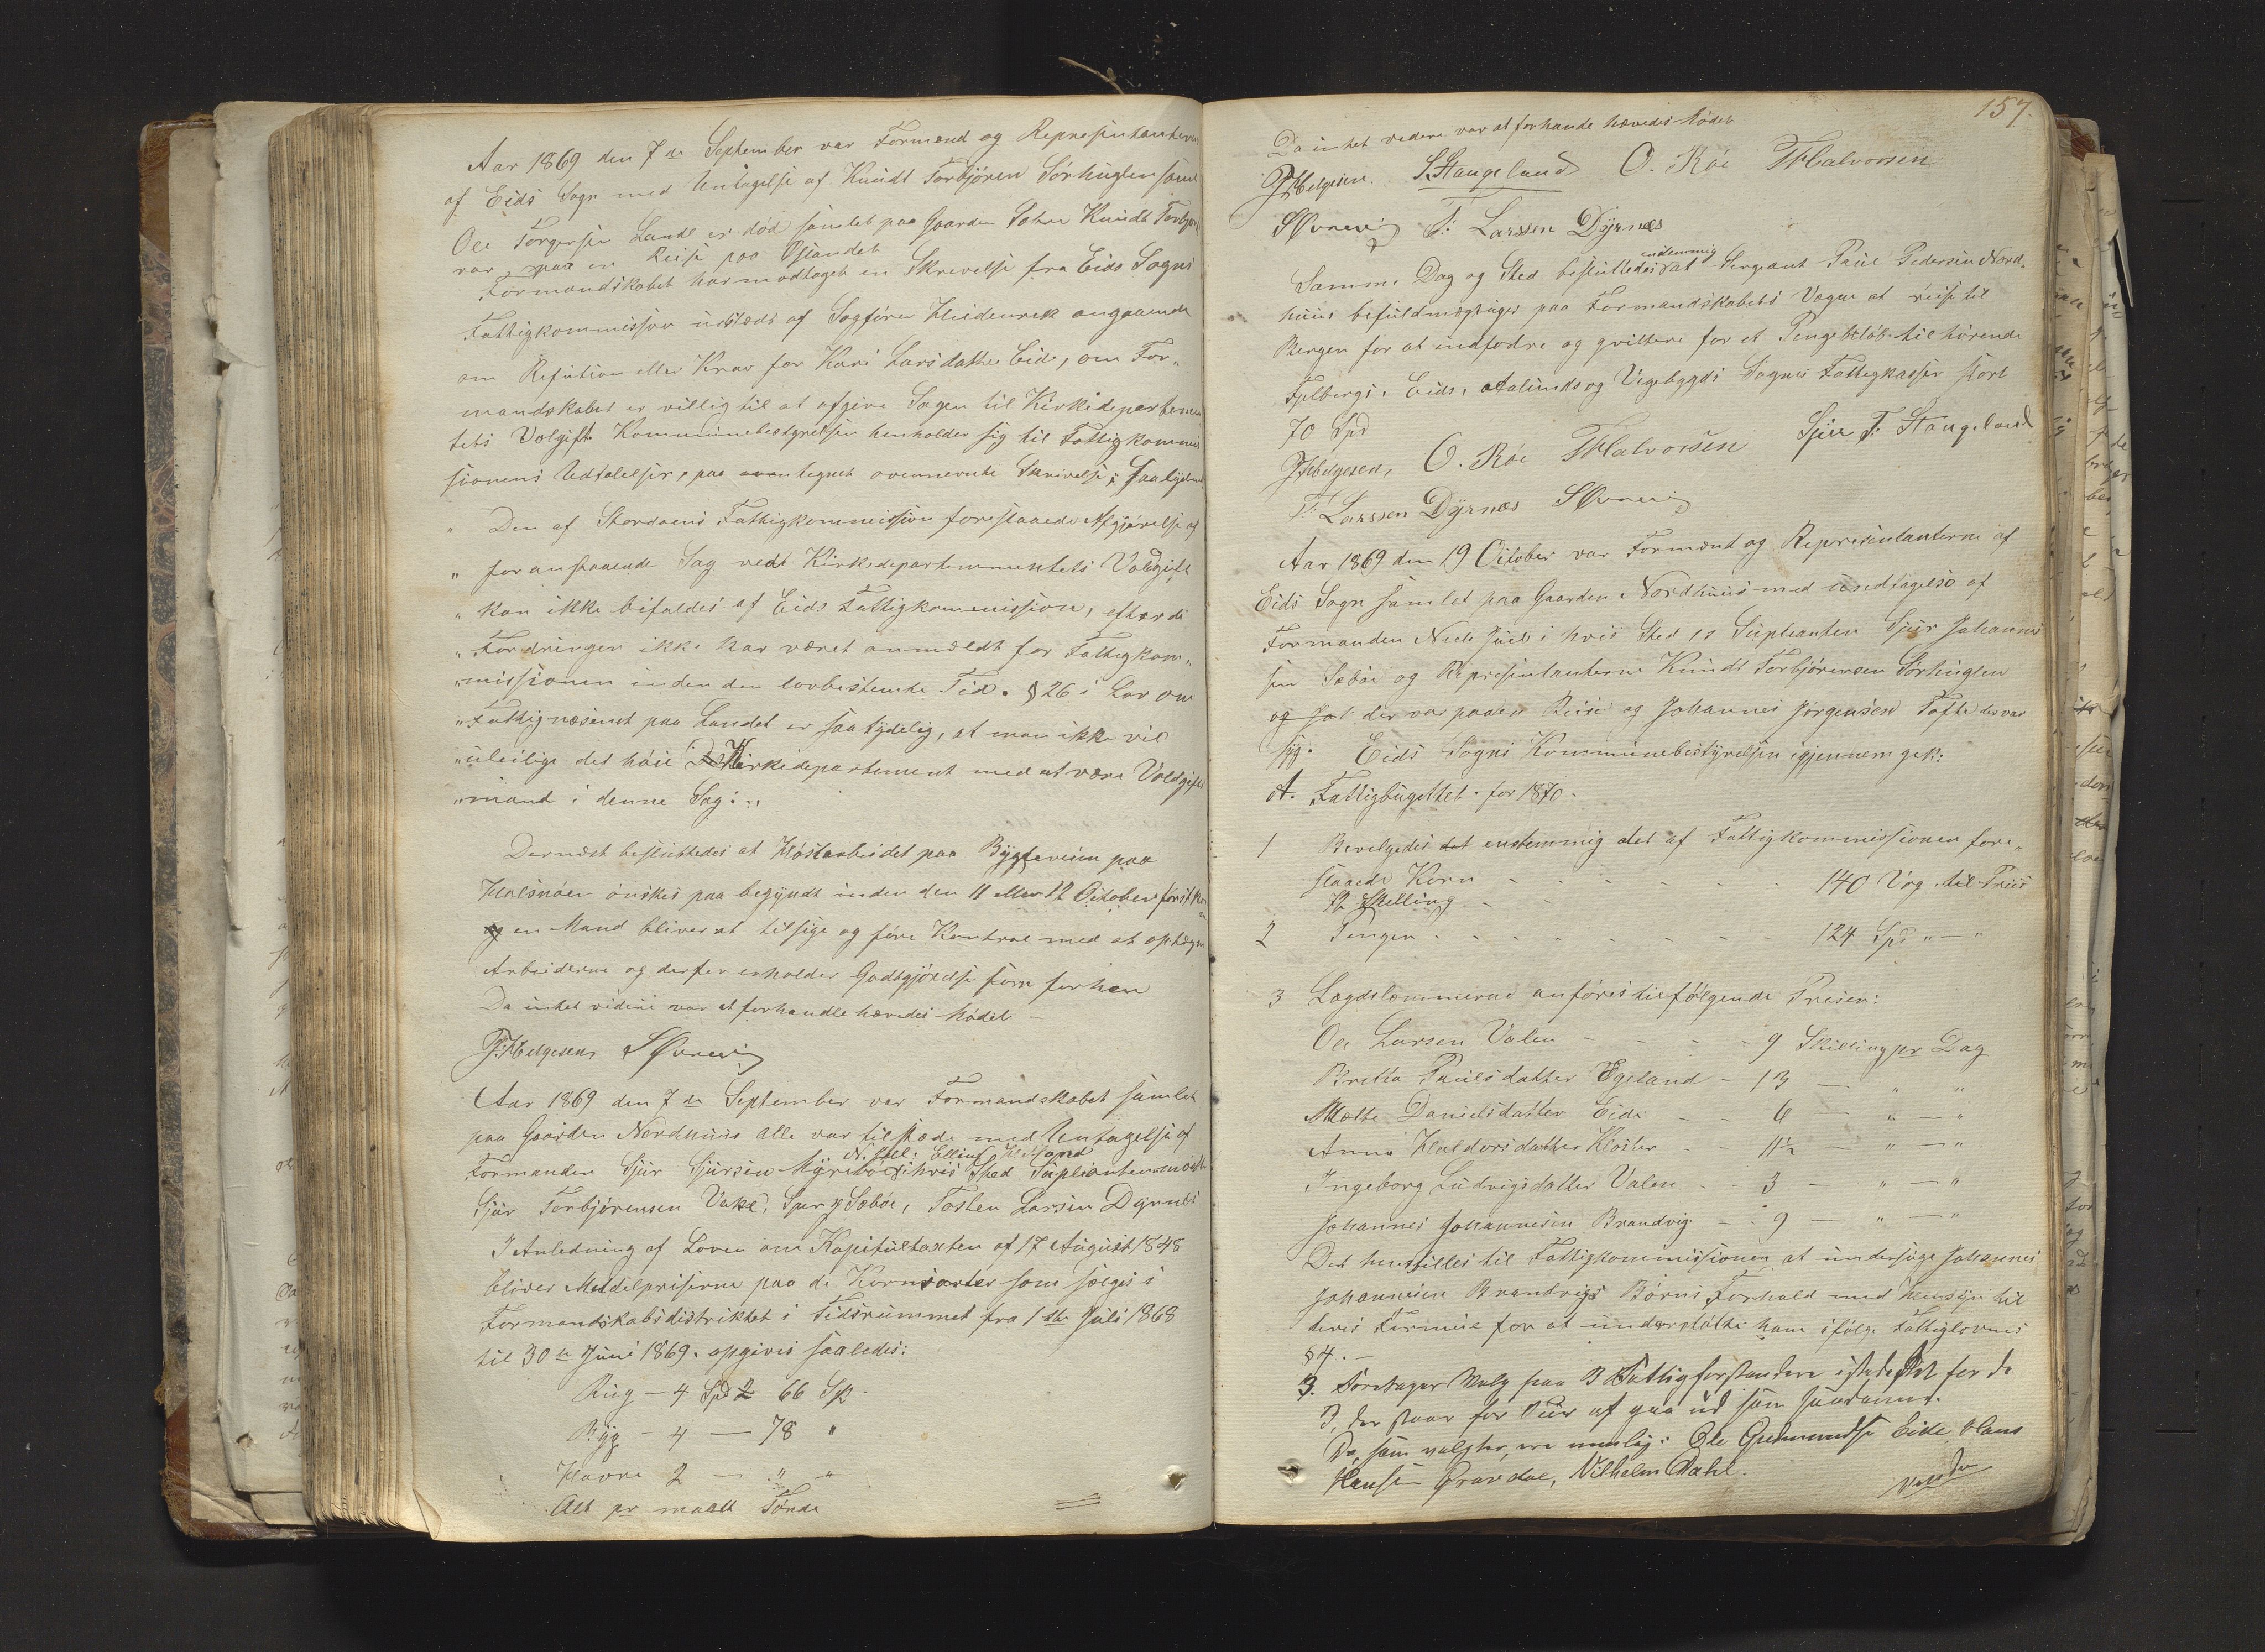 Aar 1869 den 7de September var Formænd og Repræsintanterne
af Eids Sogn med Untagelse af Knudt Torbjören Sörhuglen samt
Ole Torgersen Lande er död samlet paa Gaarden Knudt Torbjør
var paa en Reise paa Östlandet
Formandskabet har modtaget en Skrivelse fra Eids Sogns
Fattigkommission udstædt af Sagförer Heidenrek angaaende
om Refution eller Krav for Kari Larsdatter Eide, om For„
mandskabet er villig til at afgive Sagen til Kirkedepartemen
tets Volgift Kommunebestyrelsen henholder sig til Fattigkommis
sionens Udtalelser, paa tegnet ovennevnte Skrivelse; saalydende
„ Den af Stordøens Fattigkommission foreslaaede Afgjörelse af
„ foranstaaende Sag ved Kirkedepartementets Voldgift
„ kan ikke bifaldes af Eids Fattigkommission, efterdi
„ Fordringen ikke har været anmeldt for Fattigkom„
„missionen inden den lovbestemte Tid. § 26 i Lov om
„Fattigvæsenet paa Landet er saa tydelig, at man ikke vil
„uleilige det höie Kirkedepartement med at være Voldgifts
„mand i denne Sag:„
Dernæst besluttedes at Höstarbeidet paa Bygdeveien paa
Halsnöen önskes paa begyndt inden den 11 eller 12 October förstk
en Mand bliver at tilsige og före Kontrol med at optegne
Arbeiderne og derfor erholder Godtgjörelse som forhen
Da intet videre var at forhandle hævedes Mödet –
J. Helgesen S Øvrevig
Aar 1869 den 7de September var Formandskabet samlet
paa Gaarden Nordhuus alle var tilstæde med Untagelse af
N. Juel. Elling Helland
Formanden Sjur Sjursen Myrebö i hvis Sted Suplianten mödte
Sjur Torbjörensen Vake, Sjur J Sæböe, Tosten Larsen Dyrnes
I Anledning af Loven om Kapitultaxten af 17 August 1848
bliver Middelpriserne paa de Kornsarter som sælges i
Formandskabsdistriktet i Tidsrummet fra 1ste Juli 1868
til 30te Juni 1869. opgives saaledes:
Rug – 4 Spd 66 Sk
Byg – 4 — 78 "
Havre 2 — " —
Alt pr maalt Tönde
157.
Da intet videre var at forhande hævedes Mödet
J Helgesen. S. Stangeland O. Röe T Halvorsen
S Øvrevig T: Larssen Dÿrnæs
Samme Dag og Sted besluttedes endenmig at Sergeant Paul Pedersen Nord„
huus befuldmægtiges paa Formandskabets Vægne at reise til
Bergen for at indfodre og qvittere for et Pengebelöb tilhörende
Fjelbergs, Eids, Ølens og Vigebygds Sognes Fattigkasser stort
70 Spd
J Helgesen, O. Röe T Halvorsen Sjur T: Stangeland
T: Larssen Dÿrnæs S Øvrevig
Aar 1869 den 19 October var Formænd og Repræsintanterne af
Eids Sogn samlet paa Gaarden Nordhuus med undtagelse af
Formanden Niels Juel i hvis Sted er Suplianten Sjur Johannes
sen Sæböe og Repræsintanterne Knudt Torbjörensen Sörhuglen
og der var paa en Reise og Johannes Jörgensen Tofte der var
syg. Eids Sogns Kommunebestyrelsen igjennem gik:
A. Fattigbugettet. for 1870.
1 Bevelgedes enstemmig det af Fattigkommissionen fore„
slaaede Korn - - - - - 140 Vog. til Priis
72 Skelling - -
2 Penger - - - - - - 124 Spd „—"
3 Lægdelæmmerne anföres til fölgende Priser:
Ole Larsen Valen - - - - 9 Skilling pr Dag
Bretta Paulsdatter Egeland - 13 — " "
Mætte Danielsdatter Eide - - 6 — " — "
Anna Haldorsdatter Kloster - 11½ — " — "
Ingeborg Ludvigsdatter Valen - - 3 — " — "
Johannes Johannesen Brandvig - - 9 — " — "
Det henstilles til Fattigkommissionen at undersöge Johannes
Johannesen Brandvigs Börns Forhold med Hensyn til
deres Formue for at understötte ham ifölge Fattiglovens
§ 4. –
3. Foretoges Valg paa 3 Fattigforstandere istedetfor de
3, der staar for Tuur af gaa ud som saadanne.
De, som valgtes, ere nemlig: Ole Gudmundse Eide, Hans
Hansen Gravdal, Vilhelm Dahl.